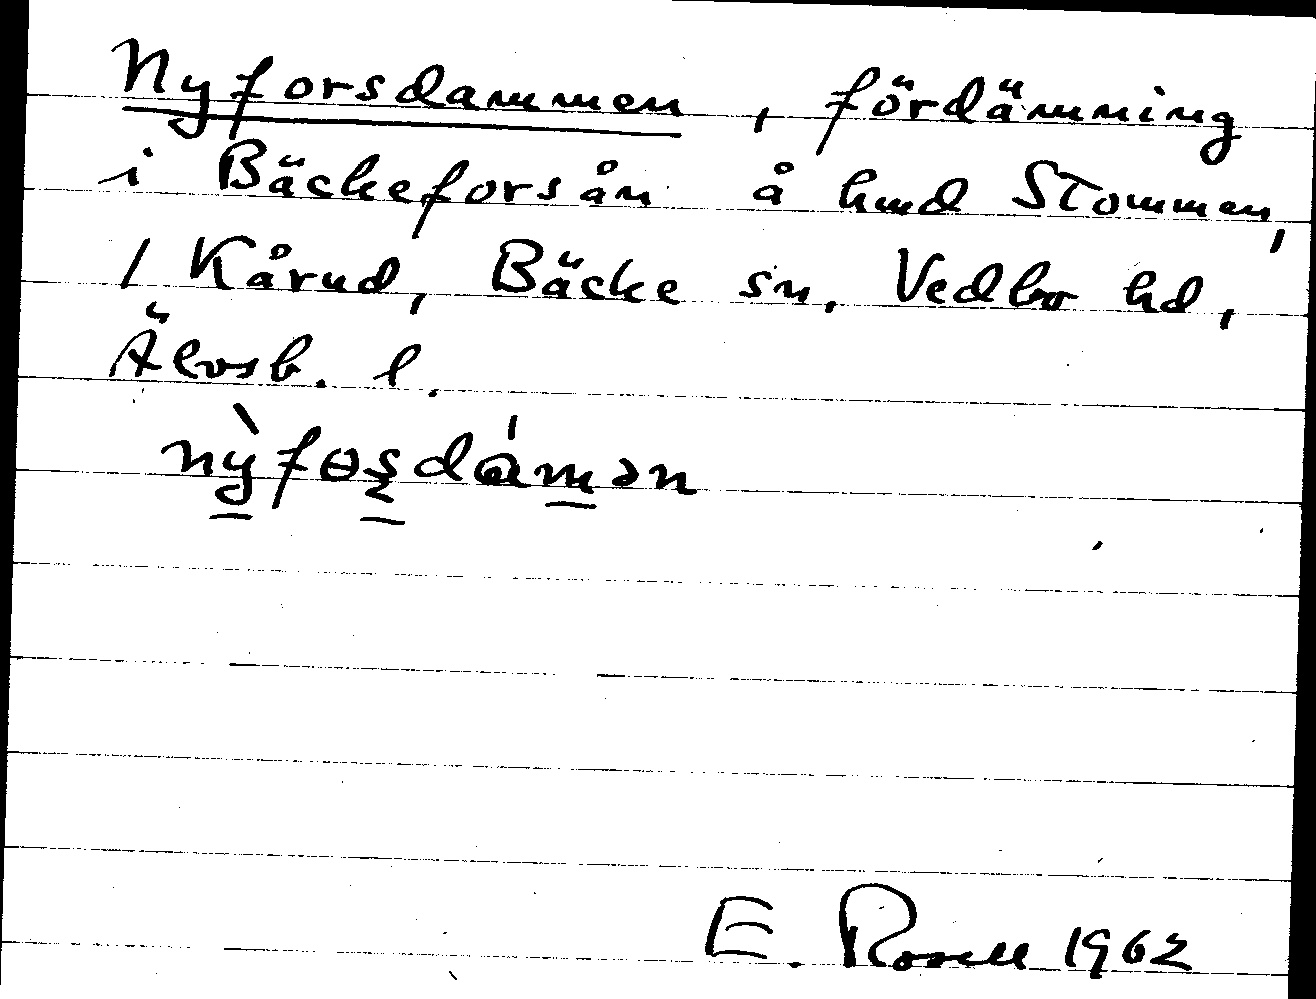 Nyforsdammen, fördämning
i Bäckeforsån å hmd Stommen,
1 Kårud, Bäcke sn. Vedbo hd,
Älvsb. l.
nỳfɵʂdámən
E. Rosell 1962